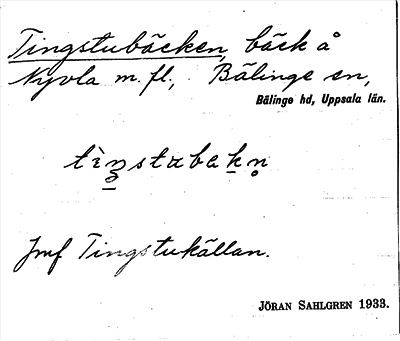 Tingstubäcken, bäck å
Nyvla m. fl., Bälinge sn,
Bälinge hd, Uppsala län.
tìŋstubekn̥
Jmf Tingstukällan.
JÖRAN SAHLGREN 1933.